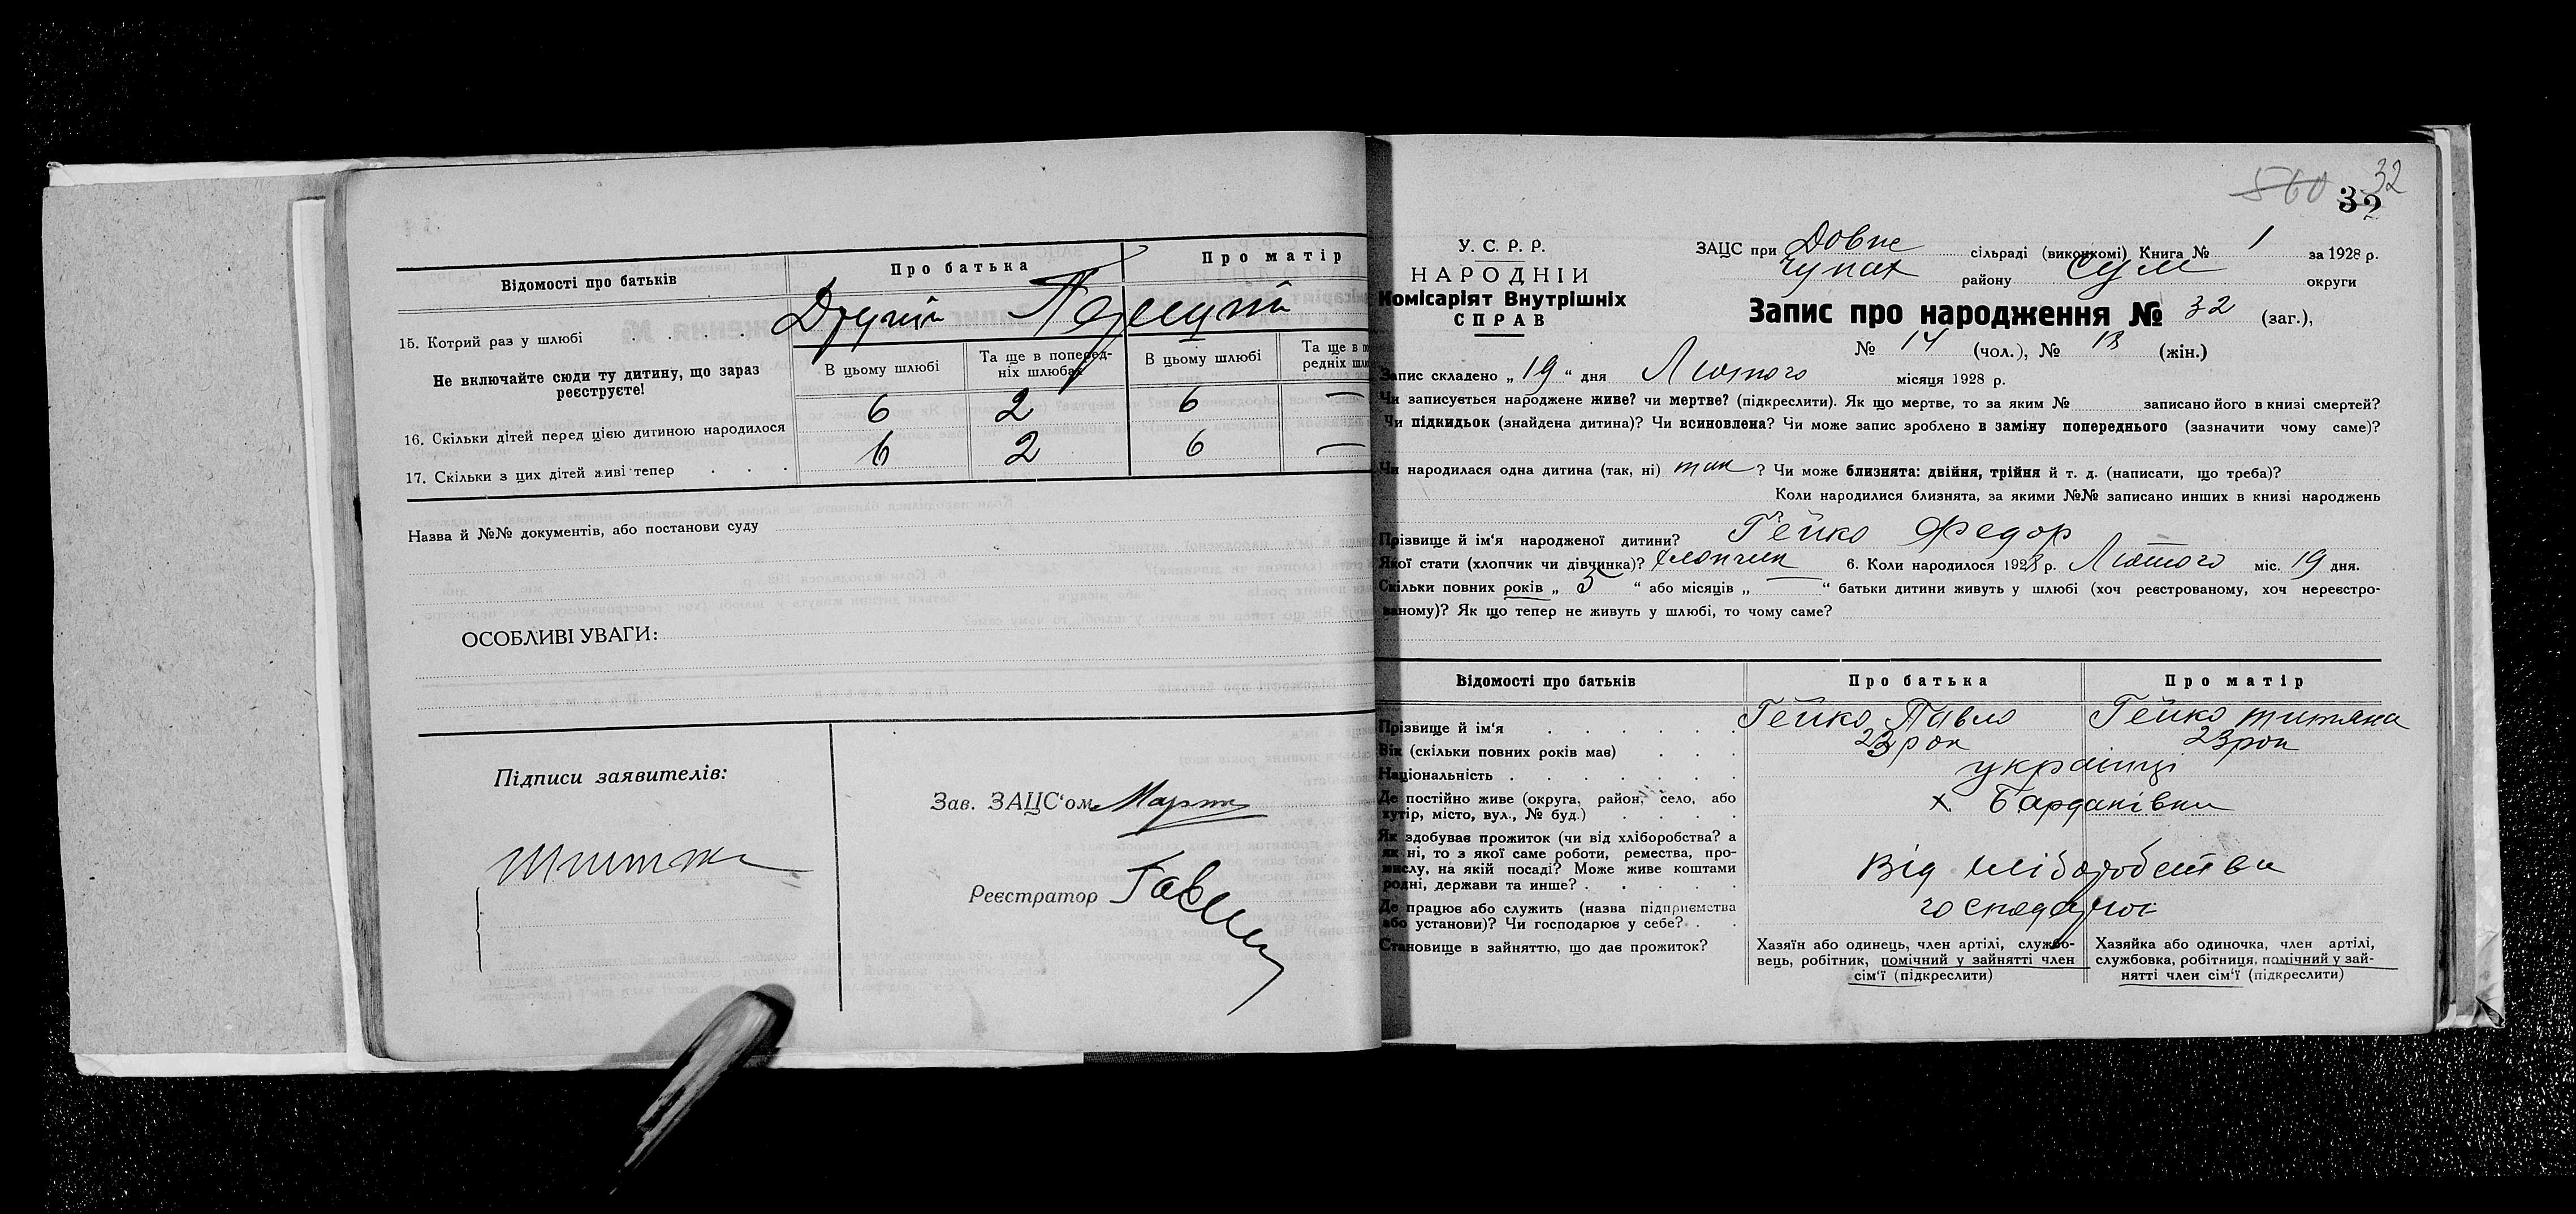 Відомості про батьків
Про батька
Про матір
15. Котрий раз у шлюбі
Другий
Первший
Не включайте сюди ту дитину, що зараз
реєструєте!
В цьому шлюбі
Та ще в поперед-
ніх шлюбах
В цьому шлюбі
Та ще в
редніх
16. Скільки дітей перед цією дитиною народилося
6 2 6 —
17. Скільки з цих дітей живі тепер
6 2 6 —
Назва й №№ документів, або постанови суду
ОСОБЛИВІ УВАГИ:
Підписи заявителів:
Зав. ЗАЦС'ом
Реєстратор
560 32
32
У. С. Р. Р.
НАРОДНІЙ
Комісаріят Внутрішніх
СПРАВ
ЗАЦС при Довпе сільраді (виконкомі) Книга № 1 за 1928 р.
Чупах району Сум округи
Запис про народження № 32 (заг.),
№ 14 (чол.), № 18 (жін.)
Запис складено „ 19 “ дня Лютого місяця 1928 р.
Чи записується народжене живе? чи мертве? (підкреслити). Як що мертве, то за яким № записано його в книзі смертей?
Чи підкидьок (знайдена дитина)? Чи всиновлена? Чи може запис зроблено в заміну попереднього (зазначити чому саме)?
Чи народилася одна дитина (так, ні) так ? Чи може близнята: двійня, трійня й т. д. (написати, що треба)?
Коли народилися близнята, за якими №№ записано инших в книзі народжень
Прізвище й ім'я народженої дитини? Гейко Федор
Якої стати (хлопчик чи дівчинка)? хлопчик 6. Коли народилося 1928 р. Лютого міс. 19 дня.
Скільки повних років „ 5 “ або місяців „ — “ батьки дитини живуть у шлюбі (хоч реєстрованому, хоч нереєстро-
ваному)? Як що тепер не живуть у шлюбі, то чому саме?
Відомості про батьків
Про батька
Про матір
Прізвище й ім'я
Гейко Павло
Гейко титяна
Вік (скільки повних років має)
23 рок
23 рок
Національність
українці
Де постійно живе (округа, район, село, або
хутір, місто, вул., № буд.)
х. Бардаківка
Як здобуває прожиток (чи від хліборобства? а
як ні, то з якої саме роботи, ремества, про-
мислу, на якій посаді? Може живе коштами
родні, держави та инше?
Від хліборобства
Де працює або служить (назва підприємства
або установи)? Чи господарює у себе?
господарює
Становище в зайняттю, що дає прожиток?
Хазяїн або одинець, член артілі, службо-
вець, робітник, помічний у зайнятті член
сім'ї (підкреслити)
Хазяйка або одиночка, член артілі,
службовка, робітниця, помічний у зай-
нятті член сім'ї (підкреслити)